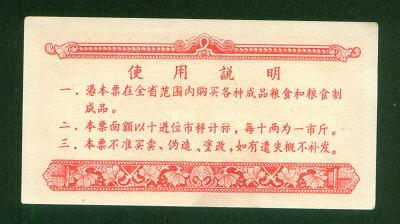 使用説明
一．憑本票在全省范围内购买各种成品粮食和粮食制
成品。
二．本票面額以十进位市秤计标，每十两为一市斤。
三．本票不准买卖、伪造、塗改，如有遺失概不补发。